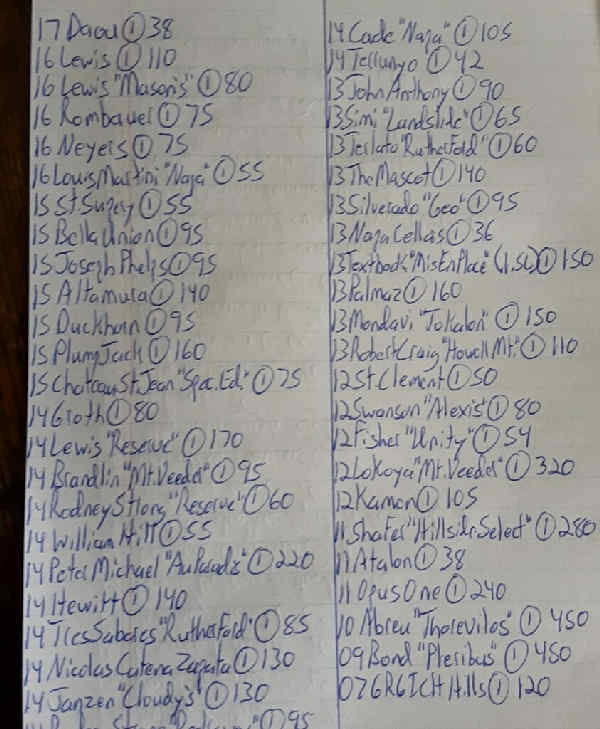 17 Daou ① 38
16 Lewis ① 110
16 Lewis "Mason's" ① 80
16 Rombauer ① 75
16 Neyers ① 75
16 Louis Martini "Napa" ① 55
15 St. Supery ① 55
15 Bella Union ① 95
15 Joseph Phelps ① 95
15 Altamura ① 140
15 Duckhorn ① 95
15 Plump Jack ① 160
15 Chateau St. Jean "Spec. Ed." ① 75
14 Groth ① 80
14 Lewis "Reserve" ① 170
14 Brandlin "Mt. Veeder" ① 95
14 Rodney Strong "Reserve" ① 60
14 William Hill ① 55
14 Peter Michael "Au Paradis" ① 220
14 Hewitt ① 140
14 Tres Sabores "Rutherford" ① 85
14 Nicolas Catena Zapata ① 130
14 Janzen "Cloudy's" ① 130
① 95
14 Cade "Napa" ① 105
14 ① 42
13 John Anthony ① 90
13 Simi "Landslide" ① 65
13 Terlato "Rutherford" ① 60
13 The Mascot ① 140
13 Silverado "Geo" ① 95
13 Napa Cellars ① 36
13 Textbook "Mis En Place" (1.5L) ① 150
13 Palmaz ① 160
13 Mondavi "Tokalon" ① 150
13 Robert Craig "Howell Mt." ① 110
12 St. Clement ① 50
12 Swanson "Alexis" ① 80
12 Fisher "Unity" ① 54
12 Lokoya "Mt. Veeder" ① 320
12 Kamen ① 105
11 Shafer "Hillside Select" ① 280
11 Atalon ① 38
11 Opus One ① 240
10 Abreu "Thorevilos" ① 450
09 Bond "Pluribus" ① 450
07 GRGICH Hills ① 120